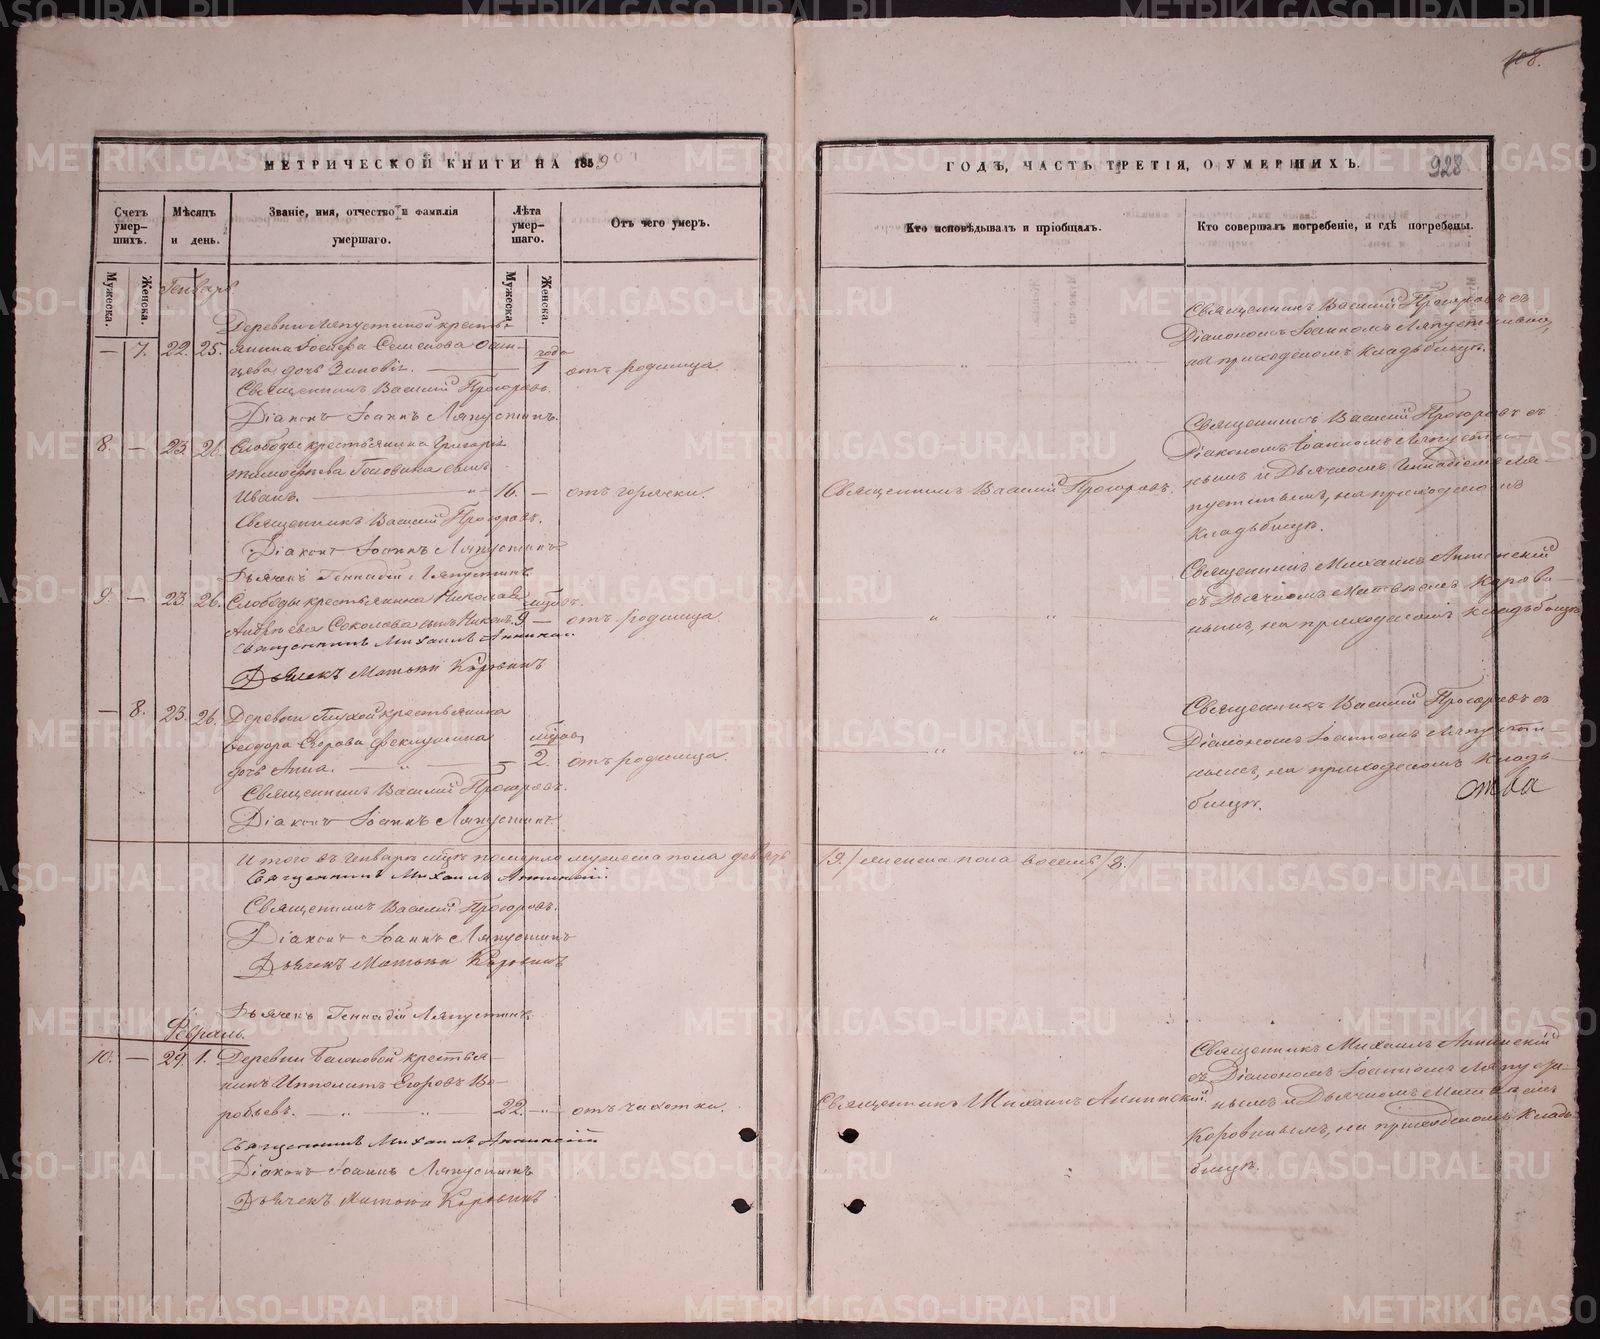 108.
МЕТРИЧЕСКОЙ КНИГИ НА 1859
Счетъ умер-шихъ.
Мѣсяцъ и день.
Званіе, имя, отчество и фамилія умершаго.
Лѣта умер-шаго.
Отъ чего умеръ.
Мужеска.
Женска.
Мужеска
Женска.
Генварь
Деревни Ляпустиной кресть-
— 7. 22. 25. янина Семенова
года
цева дочь Зиновія. — 1 отъ родимца.
Священникъ Василій
Діаконъ Іоаннъ Ляпустинъ.
8. — 23. 26. Слободы крестьянина Григорія
Тимофѣева Головина сынъ
Иванъ. — „ — 16. — отъ горячки.
Священникъ Василій
Діаконъ Іоаннъ Ляпустинъ
Дьячекъ Геннадій Ляпустинъ
9. — 23. 26. Слободы крестьянина Николая
мѣсяцъ.
Андреева Соколова сынъ 9 — отъ родимца.
Священникъ Михаилъ
Дьячекъ Матѳей Коровинъ
— 8. 23. 26. Деревни Глухой крестьянина
Ѳеодора Егорова
дочь Анна. — „ — 2. отъ родимца.
Священникъ Василій
Діаконъ Іоаннъ Ляпустинъ
Итого въ Генварѣ мцѣ померло мужеска пола девять
Священникъ Михаилъ
Священникъ Василій
Діаконъ Іоаннъ Ляпустинъ
Дьячекъ Матѳей Коровинъ
Дьячекъ Геннадій Ляпустинъ.
Февраль.
10. — 29. 1. Деревни крестья-
нинъ Ипполитъ Егоровъ Во-
робьевъ. — „ „ 22. — „ — отъ чахотки.
Священникъ Михаилъ
Діаконъ Іоаннъ Ляпустинъ
Дьячекъ Матѳей Коровинъ
ГОДЪ, ЧАСТЬ ТРЕТІЯ, О УМЕРШИХЪ.
928
Кто исповѣдывалъ и пріобщалъ.
Кто совершалъ погребеніе, и гдѣ погребены.
Священникъ Василій съ
Діакономъ Іоанномъ Ляпустинымъ,
на приходскомъ кладбищѣ.
Священникъ Василій
Священникъ Василій съ
Діакономъ Іоанномъ Ляпусти-
нымъ и Дьячкомъ Геннадіемъ Ля-
пустинымъ, на приходскомъ
кладбищѣ.
Священникъ Михаилъ
съ Дьячкомъ Матвѣемъ Корови-
нымъ, на приходскомъ кладбищѣ
Священникъ Василій съ
Діакономъ Іоанномъ Ляпусти-
нымъ, на приходскомъ кладь-
бищѣ.
ства
/9./ женска пола восемь /8./
Священникъ Михаилъ
Священникъ Михаилъ
съ Діакономъ Іоанномъ Ляпусти-
нымъ и Дьячкомъ Матвѣемъ
Коровинымъ, на приходскомъ кладь-
бищѣ.
METRIKI.GASO-URAL.RU